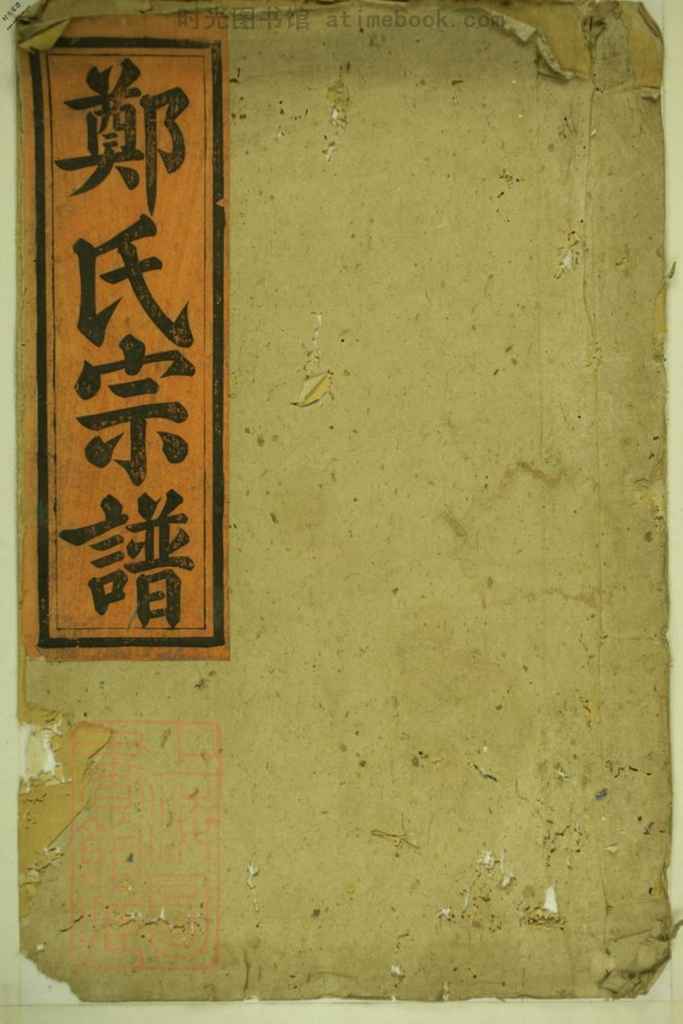 时光图书馆 atimebook.com
鄭氏宗譜